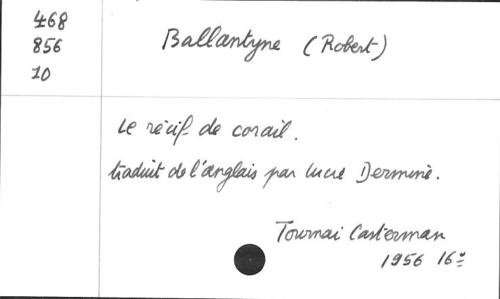 468
856
10
Ballantyne (Robert)
Le récif de corail.
traduit de l'anglais par Lucie Derminè.
Tournai Casterman
1956 16°